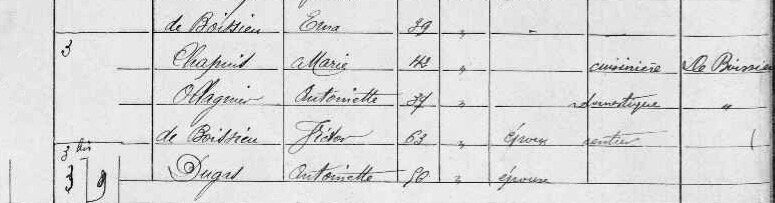 de Boissieu Ema 29 " -
3 Chapuis Marie 43 " cuisinière De Boissieu
Ollagnier Antoinette 37 " domestique "
3 bis de Boissieu Victor 63 " époux rentier
3 9 Dugas Antoinette 50 " épouse